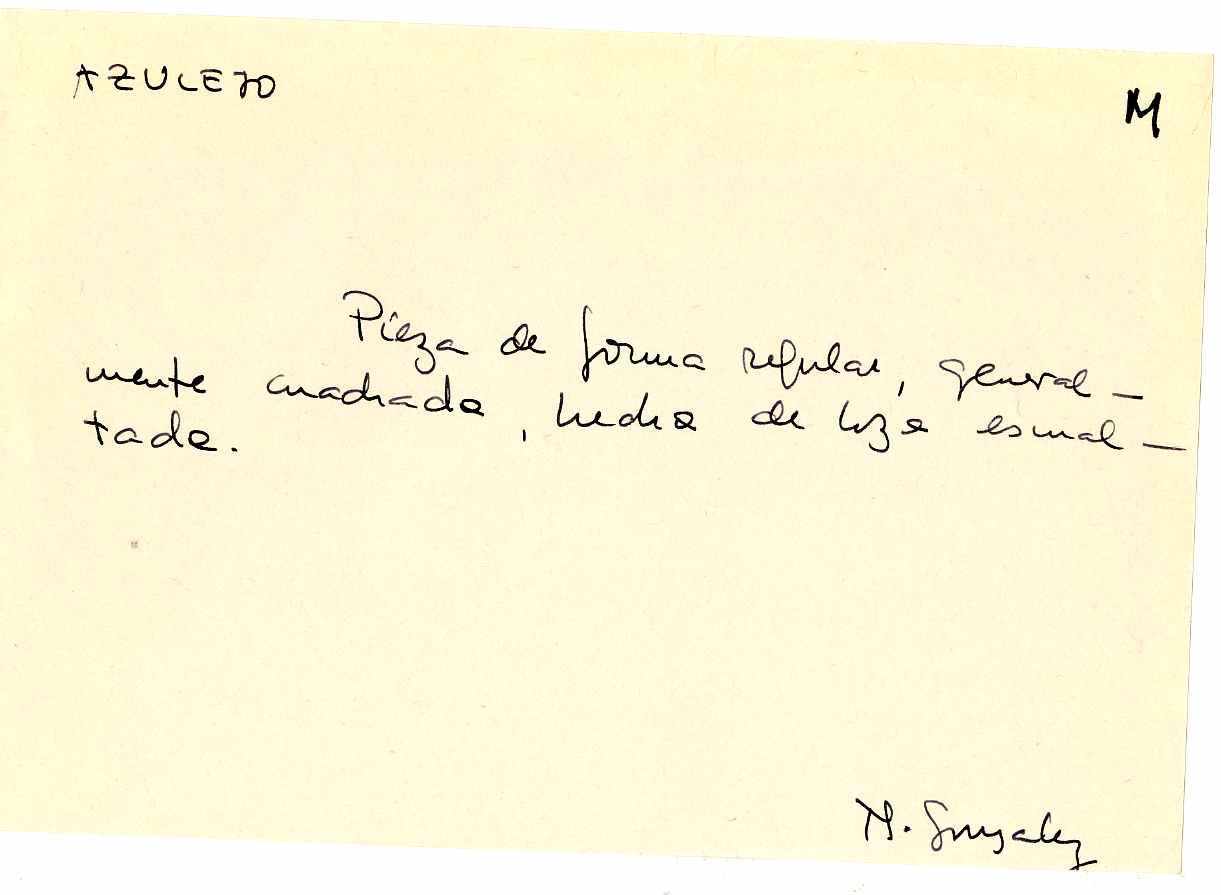 AZULEJO
M
Pieza de forma regular, general-
mente cuadrada, hecha de loza esmal-
tada.
M. Gonzalez